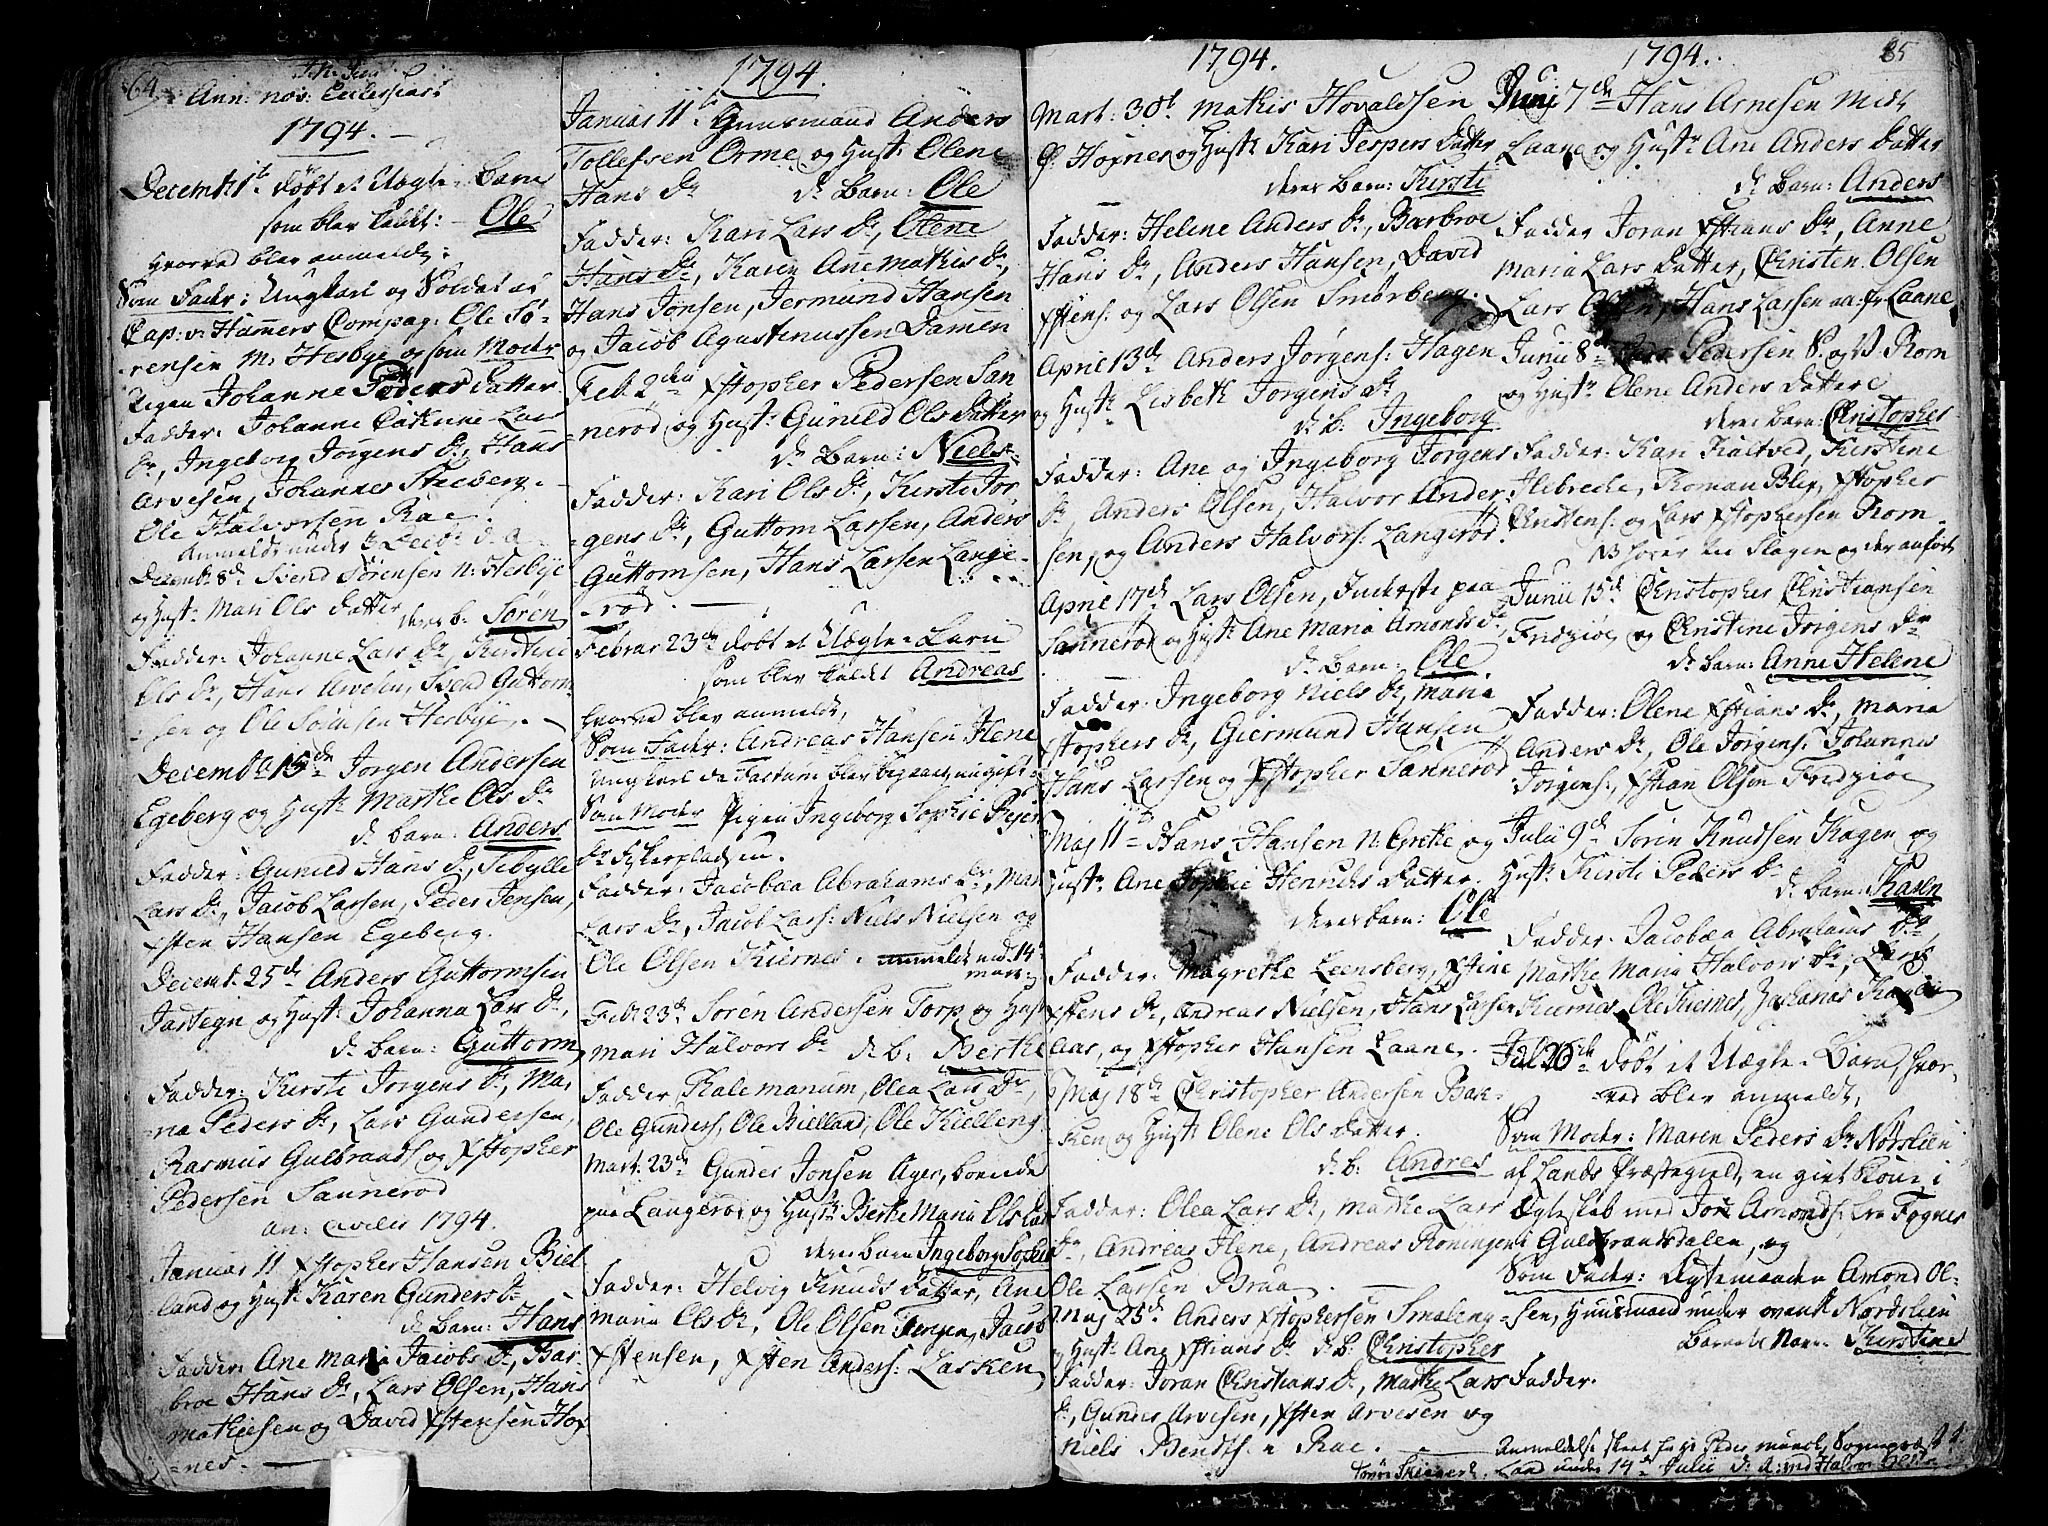 64
Ann: nov: Ecclesias:
1794.
Decemb: 1te døbt et Uægte Barn
som blev kaldt: Ole
hvorved blev anmeldt:
Som Fader: Ungkarl og Soldat af
Cap: v: Hamers Compag: Ole Sø-
rensen N: Hesbye og som Moder
Pigen Johanne Peders Datter
Fadder: Johanne Cathrine Lars
Dr, Ingeborg Jørgens Dr, Hans
Arvesen, Johannes Steeberg.
Ole Halvorsen Rae.
Anmeldt under 3 Decbr d. a.
Decemb: 8de Svend Sørensen N: Hesbye
og Hustr Mari Ols Datter
deres b: Søren
Fadder: Johanne Lars Dr, Kirstine
Ols Dr, Hans Arvesen, Svend Guttorm-
sen og Ole Sørensen Hesbye.
Decembr 15de Jørgen Andersen
Egeberg og Hustr Marthe Ols Dr
ds Barn: Anders
Fadder: Gunild Hans Dr, Sibylle
Lars Dr, Jacob Larsen, Peder Jensen,
Xsten Hansen Egeberg.
Decemt. 25de Anders Guttormsen
Jarsegn og Hustr Johanna Lars Dr,
ds Barn: Guttorm
Fadder: Kirsti Jørgens Dr, Ma-
ria Peders Dr, Lars Gundersen,
Rasmus Gulbrands: og Xstopher
Pedersen Sannerød
an: civilis 1794.
Januar 11 Xstopher Hansen Biel-
land og Hustr Karen Gunders Dr
ds Barn: Hans
Fadder: Ane Maria Jacobs Dr, Bar-
broe Hans Dr, Lars Olsen, Hans
Mathiesen og David Xstensen Hox-
nes.
1794.
Januar 11te Huusmand Anders
Tollefsen Orme og Hustr Olene
Hans Dr ds Barn: Ole
Fadder: Kari Lars Dr, Olene
Hans Dr, Karen Ane Mathis Dr,
Hans Jonsen, Jermund Hansen
og Jacob Agustinussen Damen
Feb. 2den Xstopher Pedersen San-
nerød og Hustr: Gunild Ols Datter
ds Barn: Niels
Fadder: Kari Ols Dr, Kirsti Jør-
gens Dr, Guttom Larsen, Anders
Guttomsen, Hans Larsen Lange-
rød.
Februar 23de døbt et Uægte Barn
som blev kaldt Andreas
hvorved blev anmeldt,
Som Fader: Andreas Hansen Ilene
Ungkarl da Factum blev begaaet nu gift.
Som Moder Pigen Ingeborg Sophie
Dr Fyherpladsen.
Fadder: Jacobæa Abrahams Dr, Mari
Lars Dr, Jacob Lars: Niels Nielsen og
Ole Olsen Kiernes. anmeldt ved 14
Marti
Feb: 23de Søren Andersen Torp og Hustr
Mari Halvors Dr d. b: Berthe
Fadder Male Manum, Olea Lars Dr,
Ole Gunders, Ole Bielland, Ole Kielleng
Mart. 23de Gunder Jonsen Ager, boende
paa Langerød og Hustr Berthe Maria Ols Dat
deres Barn Ingeborg Sophie
Fadder: Helvig Knuds Datter, Ane
Maria Ols Dr, Ole Olsen Tergen, Jacob
Xstensen, Xsten Anders: Lasken
1794.
Mart: 30te Mathis Hovaldsen
Ø. Hoxnes og Hustr Kari Jespers Datter
deres Barn: Kirsti
Fadder: Helene Anders Dr, Barbroe
Hans Dr, Anders Hansen, David
Xstens: og Lars Olsen Smørberg.
April 13de Anders Jørgens: Hagen
og Hustr Lisbeth Jørgens Dr
ds b: Ingeborg
Fadder: Ane og Ingeborg Jørgens
Dr, Anders Olsen, Halvor Ander-
sen, og Anders Halvors: Langerød.
April 17de Lars Olsen, Inderste paa
Sannerød og Hustr Ane Maria Amonds Dr
ds Barn: Ole
Fadder: Ingeborg Niels Dr, Maria
Xstophers Dr, Giermund Hansen
Hans Larsen og Xstopher Sannerød
Maj 11te Hans Hansen N: Grethe og
Hustr: Ane Sophie Henrichs Datter.
deres Barn: Ole
Fadder: Magrethe Leensberg, Xstine
Xstens Dr, Andreas Nielsen, Hans Larsen
Aas, og Xstopher Hansen Laane.
Maj 18de Christopher Andersen Bak-
ken og Hustr Olene Ols Datter.
ds b: Andres
Fadder: Olea Lars Dr, Marthe Lars
Dr, Andreas Ilene, Andreas Røningen
Ole Larsen Braa
Maj 25de Anders Xstophersen Smaleng
og Hustr Ane Xstians Dr d. b: Christopher
Fadder: Joran Christians Dr, Marthe Lars
Dr, Gunder Arvesen, Xsten Arvesen og
Niels Bendts: Rae.
1794.
85
Junij 7de Hans Arnesen Midt
Laane og Hustr Ane Anders Datter
ds Barn: Anders
Fadder Joran Xstians Dr, Anne
Maria Lars Datter, Christen Olsen
Lars Olsen, Hans Larsen Laane
Junii 8de Lars Pedersen S. og V. Rom
og Hustr Olene Anders Datter
deres Barn: Christopher
Fadder: Kari Kaltved, Kirstine
Ilebreche, Roman Blix, Xstopher
Christens: og Lars Xstophersen Rom.
NB hører til Slagen og der anført
Junii 15de Christopher Christiansen
Fredziøe, og Christine Jørgens Dr
ds Barn: Anne Helene
Fadder: Olene Xstians Dr, Maria
Anders Dr, Ole Jørgens: Johannes
Jørgens:, Xstian Olsen Fredziøe
Julii 9de Søren Knudsen Kagen og
Hustr: Kirsti Peders Dr
ds Barn: Karen
Fadder: Jacobæa Abrahams Dr,
Marthe Maria Halvors Dr, Lars
Kiernes, Ole Kiernes, Zacharias Kagen
Jul: 20de døbt et Uægte Barn, hvor-
ved blev anmeldt,
Som Moder: Maren Peders Dr Nordlien
af Lands Præstegield, en givt Kone i
Ægteskab med Jon Amonds: fra Fogner
i Guldbrandsdalen, og
Som Fader: Ægtemanden Amond Ol-
sen, Huusmand under ovenst: Nordlien
Barnets Navn: Kirstine
Fadder.
Anmeldelse skeet fra Hr Peder Munch, Sogne
Land under 14de Julii d. a: med Halvor